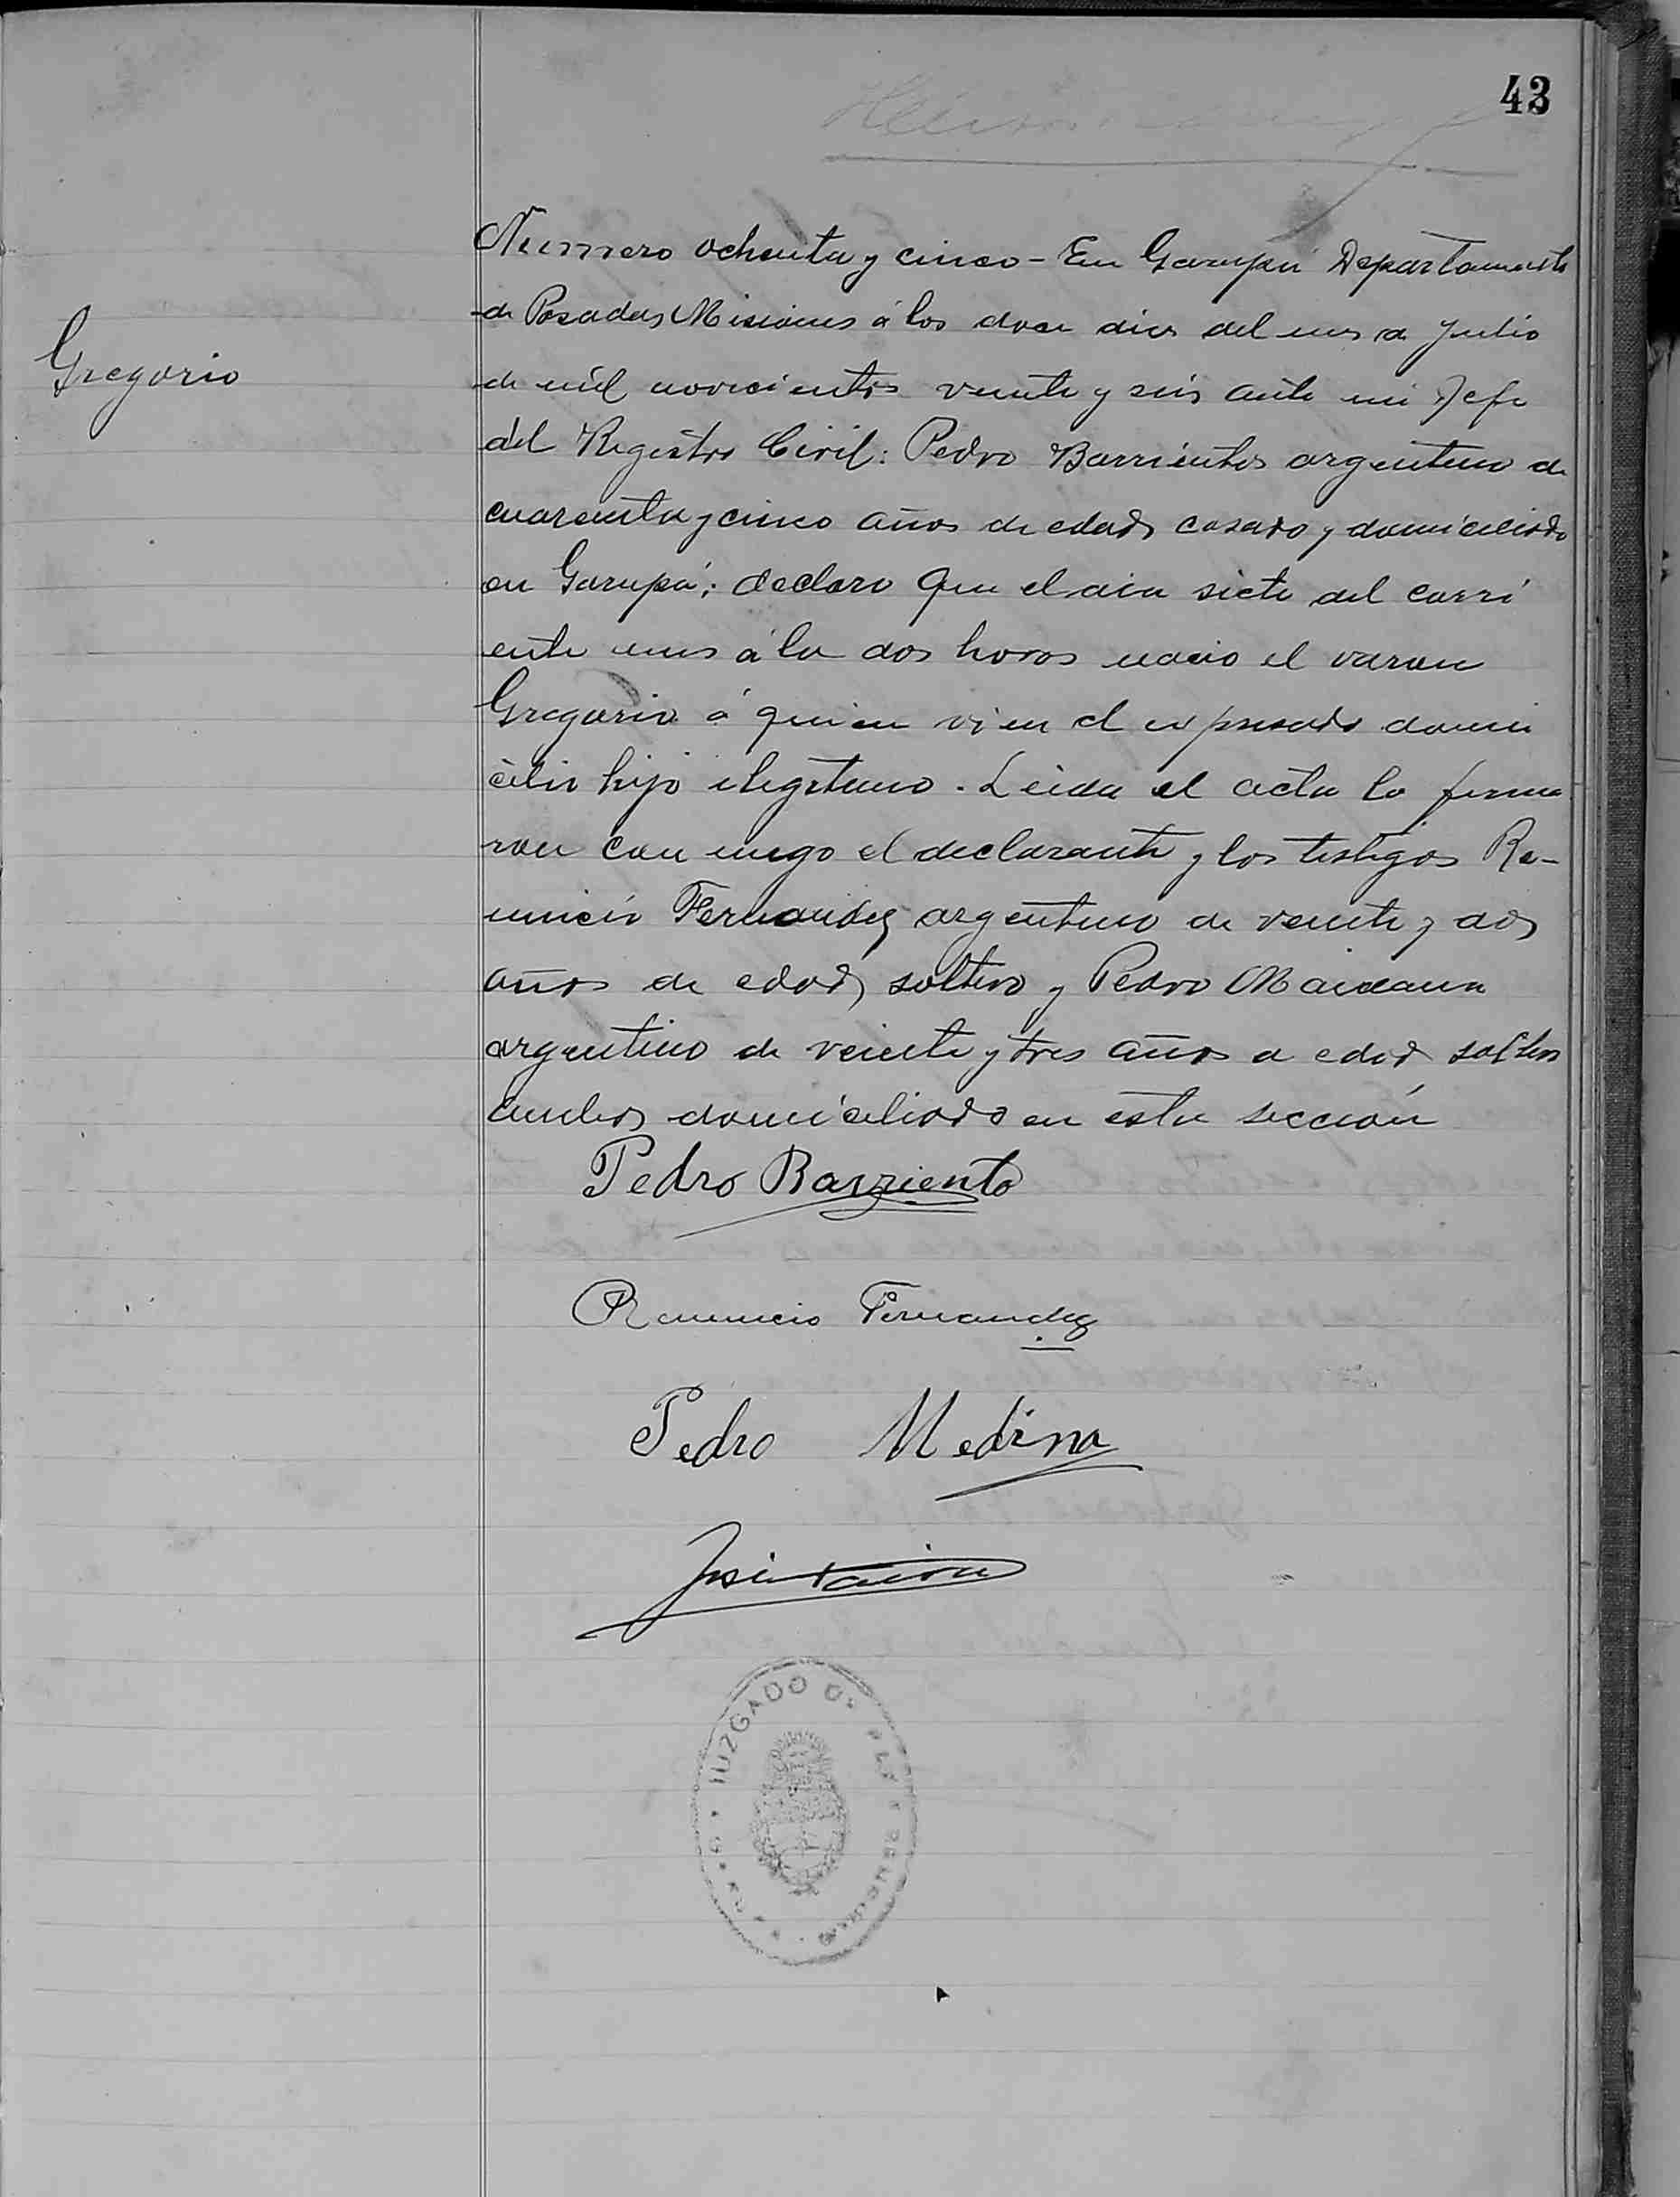 43
Numero ochenta y cinco - En Garupá Departamento
de Posadas Misiones á los doce dias del mes de Julio
de mil novecientos veinte y seis ante mi Jefe
del Registro Civil: Pedro Barrientos argentino de
cuarenta y cinco años de edad, casado y domiciliado
en Garupá; declaro que el dia siete del corri
ente mes á la dos horas nacio el varon
Gregorio
Gregorio á quien vi en el expresado domi
cilio hijo ilegitimo. Leida el acta la firma
ron con migo el declarante y los testigos Re-
micio Fernandez argentino de veinte y dos
años de edad, soltero y Pedro Maidana
argentino de veinte y tres años de edad soltero
ambos domiciliados en esta sección
Pedro Barriento
Remicio Fernandez
Pedro Medina
JUZGADO DE